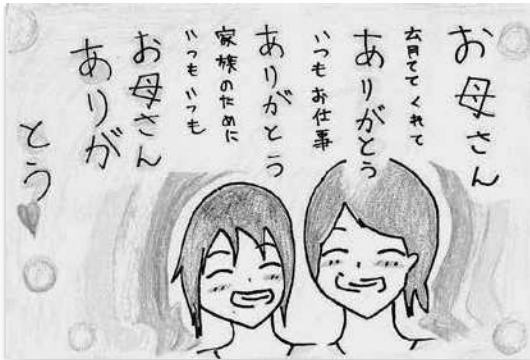 お母さん
育てて くれて
ありがとう
いつもお仕事
ありがとう
家族のために
いつも いつも
お母さん
ありが
とう♥